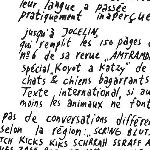 leur langue a passée
pratiquement inaperçue
jusqu'à JOCELIN,
qui remplit les 150 pages d
n°6 de sa revue "AMTRAMD
spécial "Koyot a Katzy" de
chats & chiens bagarrants
Texte international, si au
moins les animaux ne font
pas de conversations différe
selon la région: "SCRING BLUT
TCH KICKS KIKS SCHREAH SSRAFF A